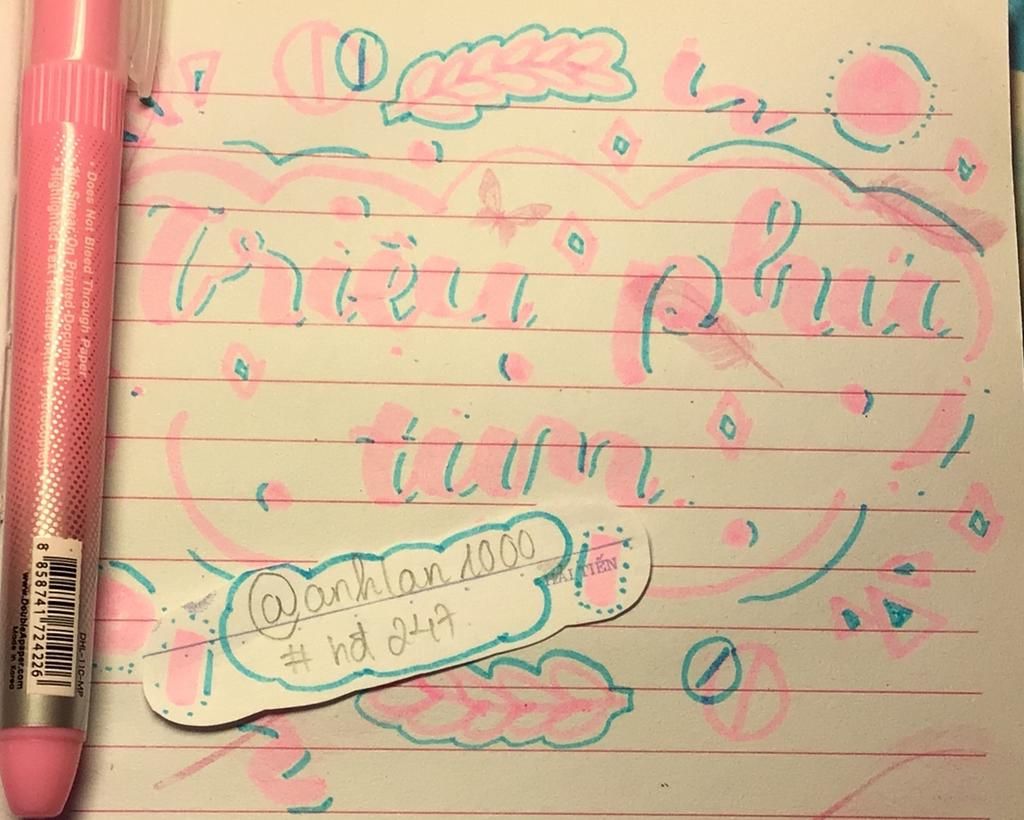 Triệu phú
tim
@anhlan1000
# hdt 247
HẢI TIẾN
*Does Not Bleed Through Paper
*No Smear On Printed Document
Highlighted Text Readable
8 858741 724226
www.DoubleApaper.com
Made in Korea